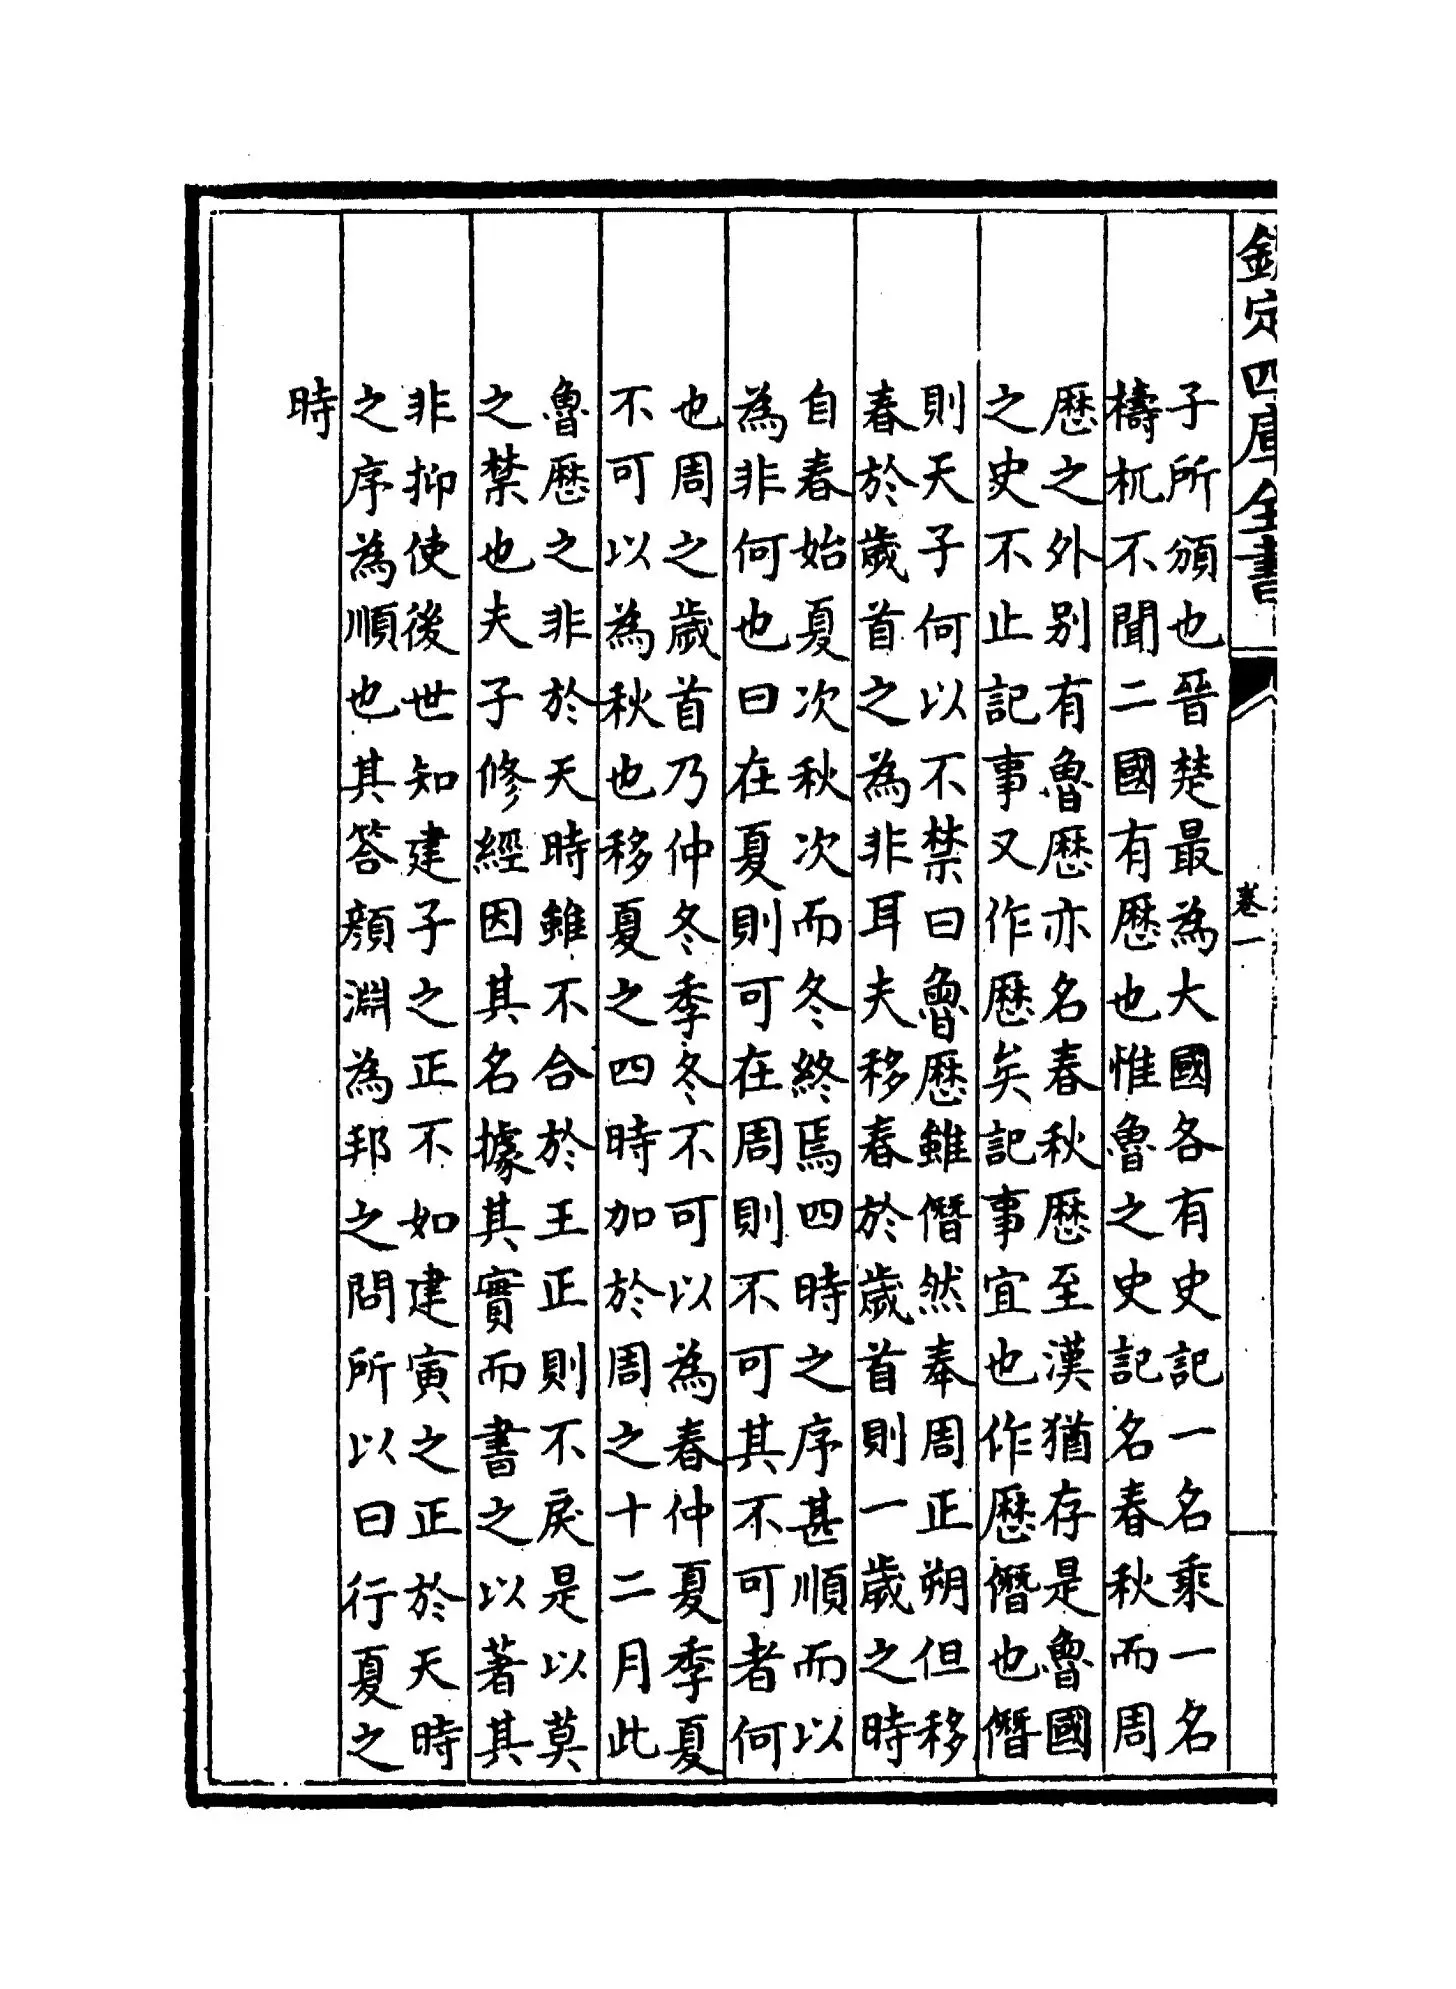 欽定四庫全書
卷一
子所頒也晉楚最為大國各有史記一名乘一名
檮杌不聞二國有厯也惟魯之史記名春秋而周
厯之外别有魯厯亦名春秋厯至漢猶存是魯國
之史不止記事又作厯矣記事宜也作厯僭也僭
則天子何以不禁曰魯厯雖僭然奉周正朔但移
春於歲首之為非耳夫移春於歲首則一歲之時
自春始夏次秋次而冬終焉四時之序甚順而以
為非何也曰在夏則可在周則不可其不可者何
也周之歲首乃仲冬季冬不可以為春仲夏季夏
不可以為秋也移夏之四時加於周之十二月此
魯厯之非於天時雖不合於王正則不戾是以莫
之禁也夫子修經因其名據其實而書之以著其
非抑使後世知建子之正不如建寅之正於天時
之序為順也其答顔淵為邦之問所以曰行夏之
時